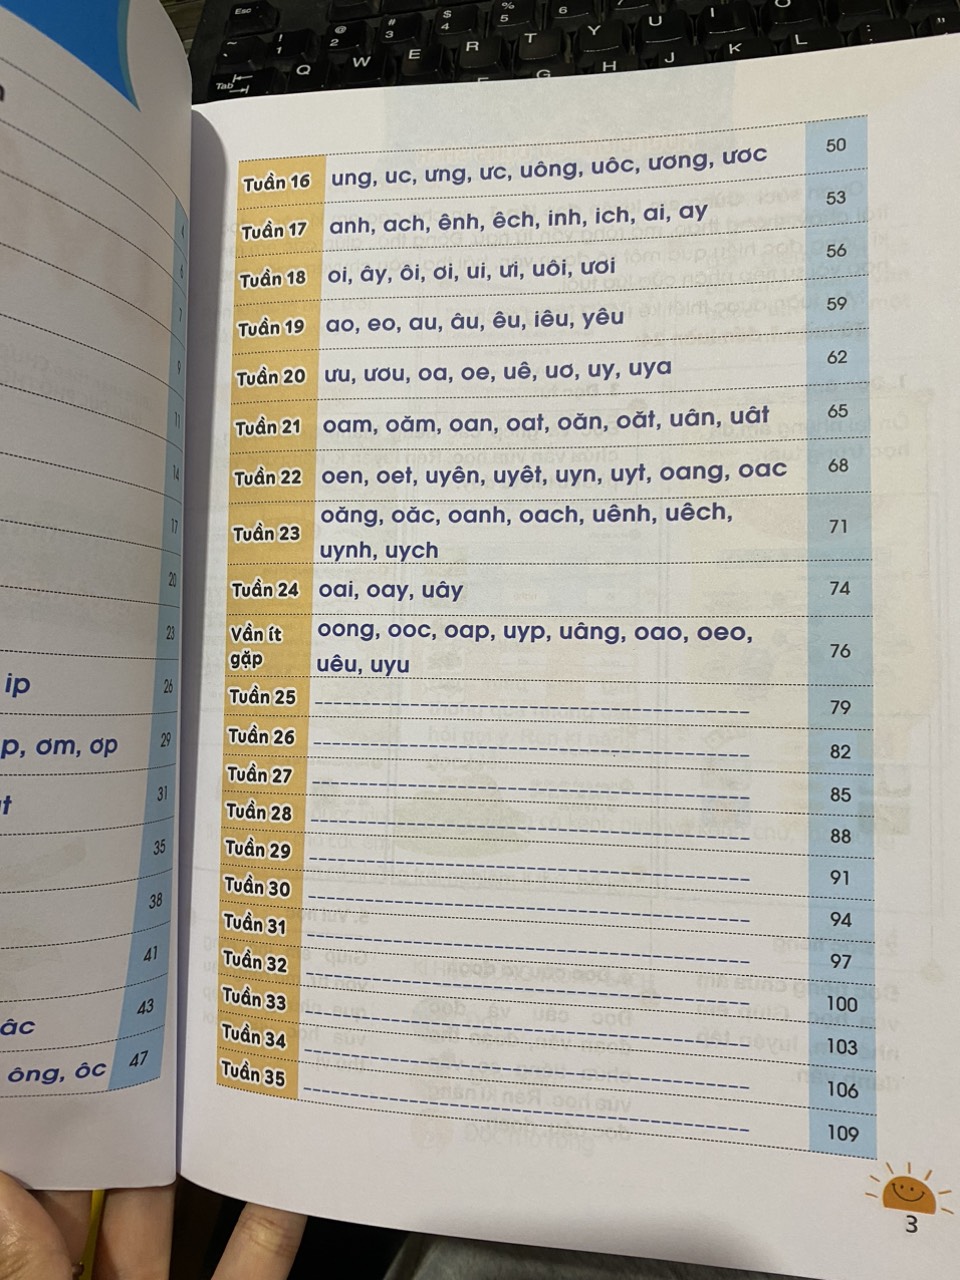 Esc
~
!
1
@
2
#
3
$
4
%
5
6
Tab
Q
W
E
R
T
Y
U
I
G
H
J
K
L
4
6
7
9
11
14
17
20
23
ip 26
p, ơm, ơp 29
31
35
38
41
âc 43
ông, ôc 47
Tuần 16 ung, uc, ưng, ưc, uông, uôc, ương, ươc 50
Tuần 17 anh, ach, ênh, êch, inh, ich, ai, ay 53
Tuần 18 oi, ây, ôi, ơi, ui, ưi, uôi, ươi 56
Tuần 19 ao, eo, au, âu, êu, iêu, yêu 59
Tuần 20 ưu, ươu, oa, oe, uê, uơ, uy, uya 62
Tuần 21 oam, oăm, oan, oat, oăn, oăt, uân, uât 65
Tuần 22 oen, oet, uyên, uyêt, uyn, uyt, oang, oac 68
Tuần 23 oăng, oăc, oanh, oach, uênh, uêch, 71
uynh, uych
Tuần 24 oai, oay, uây 74
Vần ít oong, ooc, oap, uyp, uâng, oao, oeo, 76
gặp uêu, uyu
Tuần 25 79
Tuần 26 82
Tuần 27 85
Tuần 28 88
Tuần 29 91
Tuần 30 94
Tuần 31 97
Tuần 32 100
Tuần 33 103
Tuần 34 106
Tuần 35 109
3